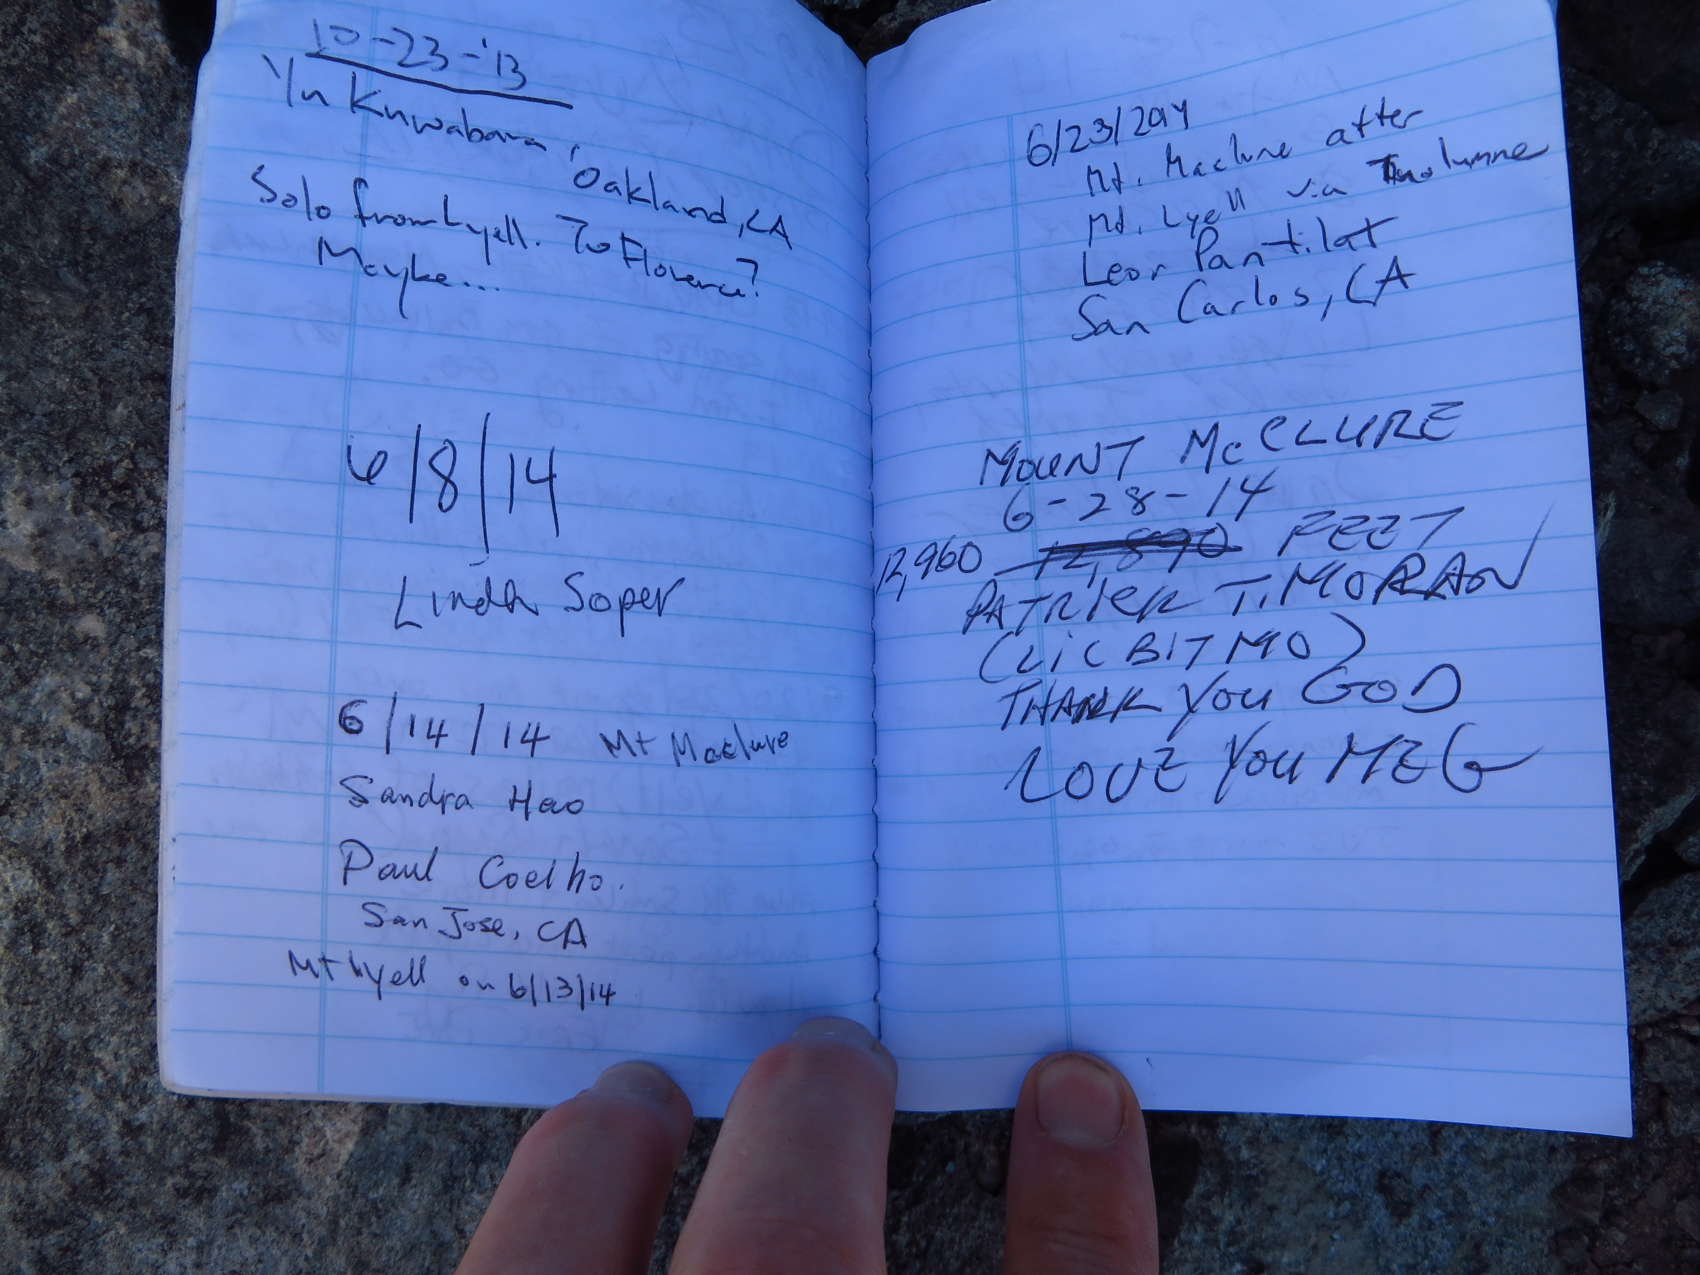 10-23-'13
Yn Kuwabara, Oakland, CA
Solo from Lyell. To Florence?
Maybe...
6/8/14
Linda Soper
6/14/14 Mt Maclure
Sandra Hao
Paul Coelho.
San Jose, CA
Mt Lyell on 6/13/14
6/23/2014
Mt. Maclure after
Mt. Lyell via Tuolumne
Leor Pantilat
San Carlos, CA
MOUNT McCLURE
6-28-14
12,960 12,890 FEET
PATRICK T. MORAN
(CLICBITMO)
THANK YOU GOD
LOVE YOU MEG